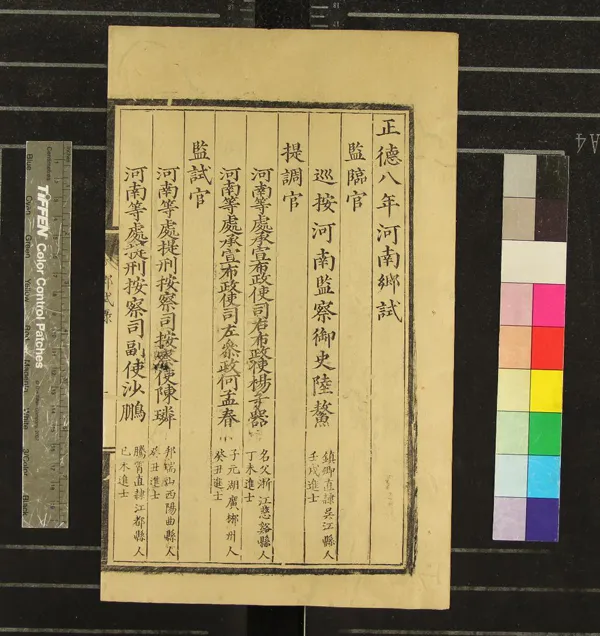 正德八年河南鄉試
監臨官
巡按河南監察御史陸鰲
鎮卿直隸吳江縣人
壬戌進士
提調官
河南等處承宣布政使司右布政使楊子器
名父浙江慈谿縣人
丁未進士
河南等處承宣布政使司左叅政何孟春
子元湖廣郴州人
癸丑進士
監試官
河南等處提刑按察司按察使陳璘
邦瑞山西陽曲縣人
癸丑進士
河南等處提刑按察司副使沙鵬
騰霄直隸江都縣人
己未進士
TIFFEN Color Control Patches
Blue
Green
A4